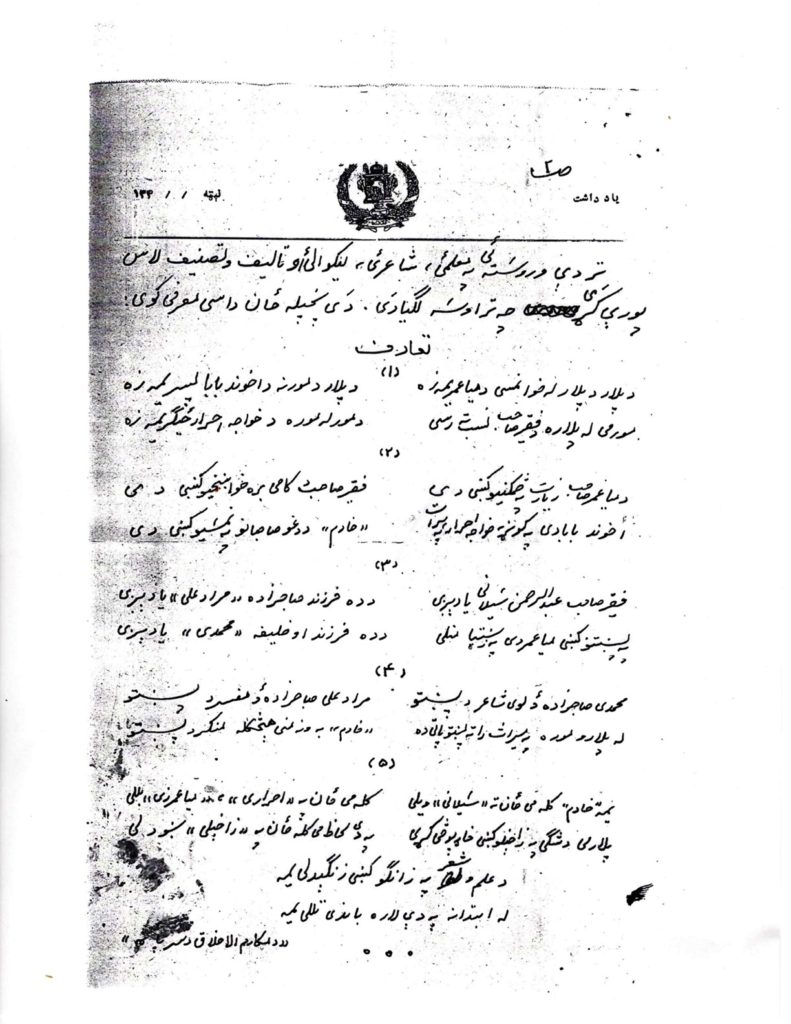 ص ۲
یادداشت
نېټه / / ۱۳۴
تر دې وروسته ئې په معلمۍ، شاعرۍ، لیکوالۍ او تالیف و تصنیف لاس
پورې کړی چه تر اوسه لگیا دی. دی پخپله ځان داسې معرفي کوي:
تعارف
(۱)
د پلار د پلار له خوا نمسی د میا عمر یمه زه د پلار د مور نه د اخوند بابا لمسی یمه زه
مور مې له پلاره د فقیر صاحب نسبت رسي د مور له موره د خواجه احرار ځیگر یمه زه
(۲)
د میا عمر صاحب زیارت په چمکنیو کښې دی فقیر صاحب کامې بره خوا کښې دی
اخوند بابا دی په کونړ خواجه احرار په هرات «خادم» د دغو صاحبانو په کښې دی
(۳)
فقیر صاحب عبدالرحمن شیلاني یادېږي د ده فرزند صاحبزاده «مراد علي» یادېږي
په پښتو کښې میا عمر دی د ده فرزند او خلیفه «محمدي» یادېږي
(۴)
محمدي صاحبزاده ؤ لوی شاعر د پښتو مراد علي صاحبزاده ؤ مفسر د پښتو
له پلار و موره په میراث راته پښتو پاتې ده «خادم» به ومني هېڅکله منکر د پښتو
(۵)
یمه خادم کله مې ځان ته «شیلاني» ویلی کله مې ځان په «احراري»، «میا عمرزي» بللی
پلار مې کښې خاورو کړی په دې لحاظ مې کله ځان په «زاخیلي» ښودلی
د علم و شعر په زانگو کښې زنگېدلی یمه
له ابتدا نه په دې لاره باندې تللی یمه
«د مکارم الاخلاق د